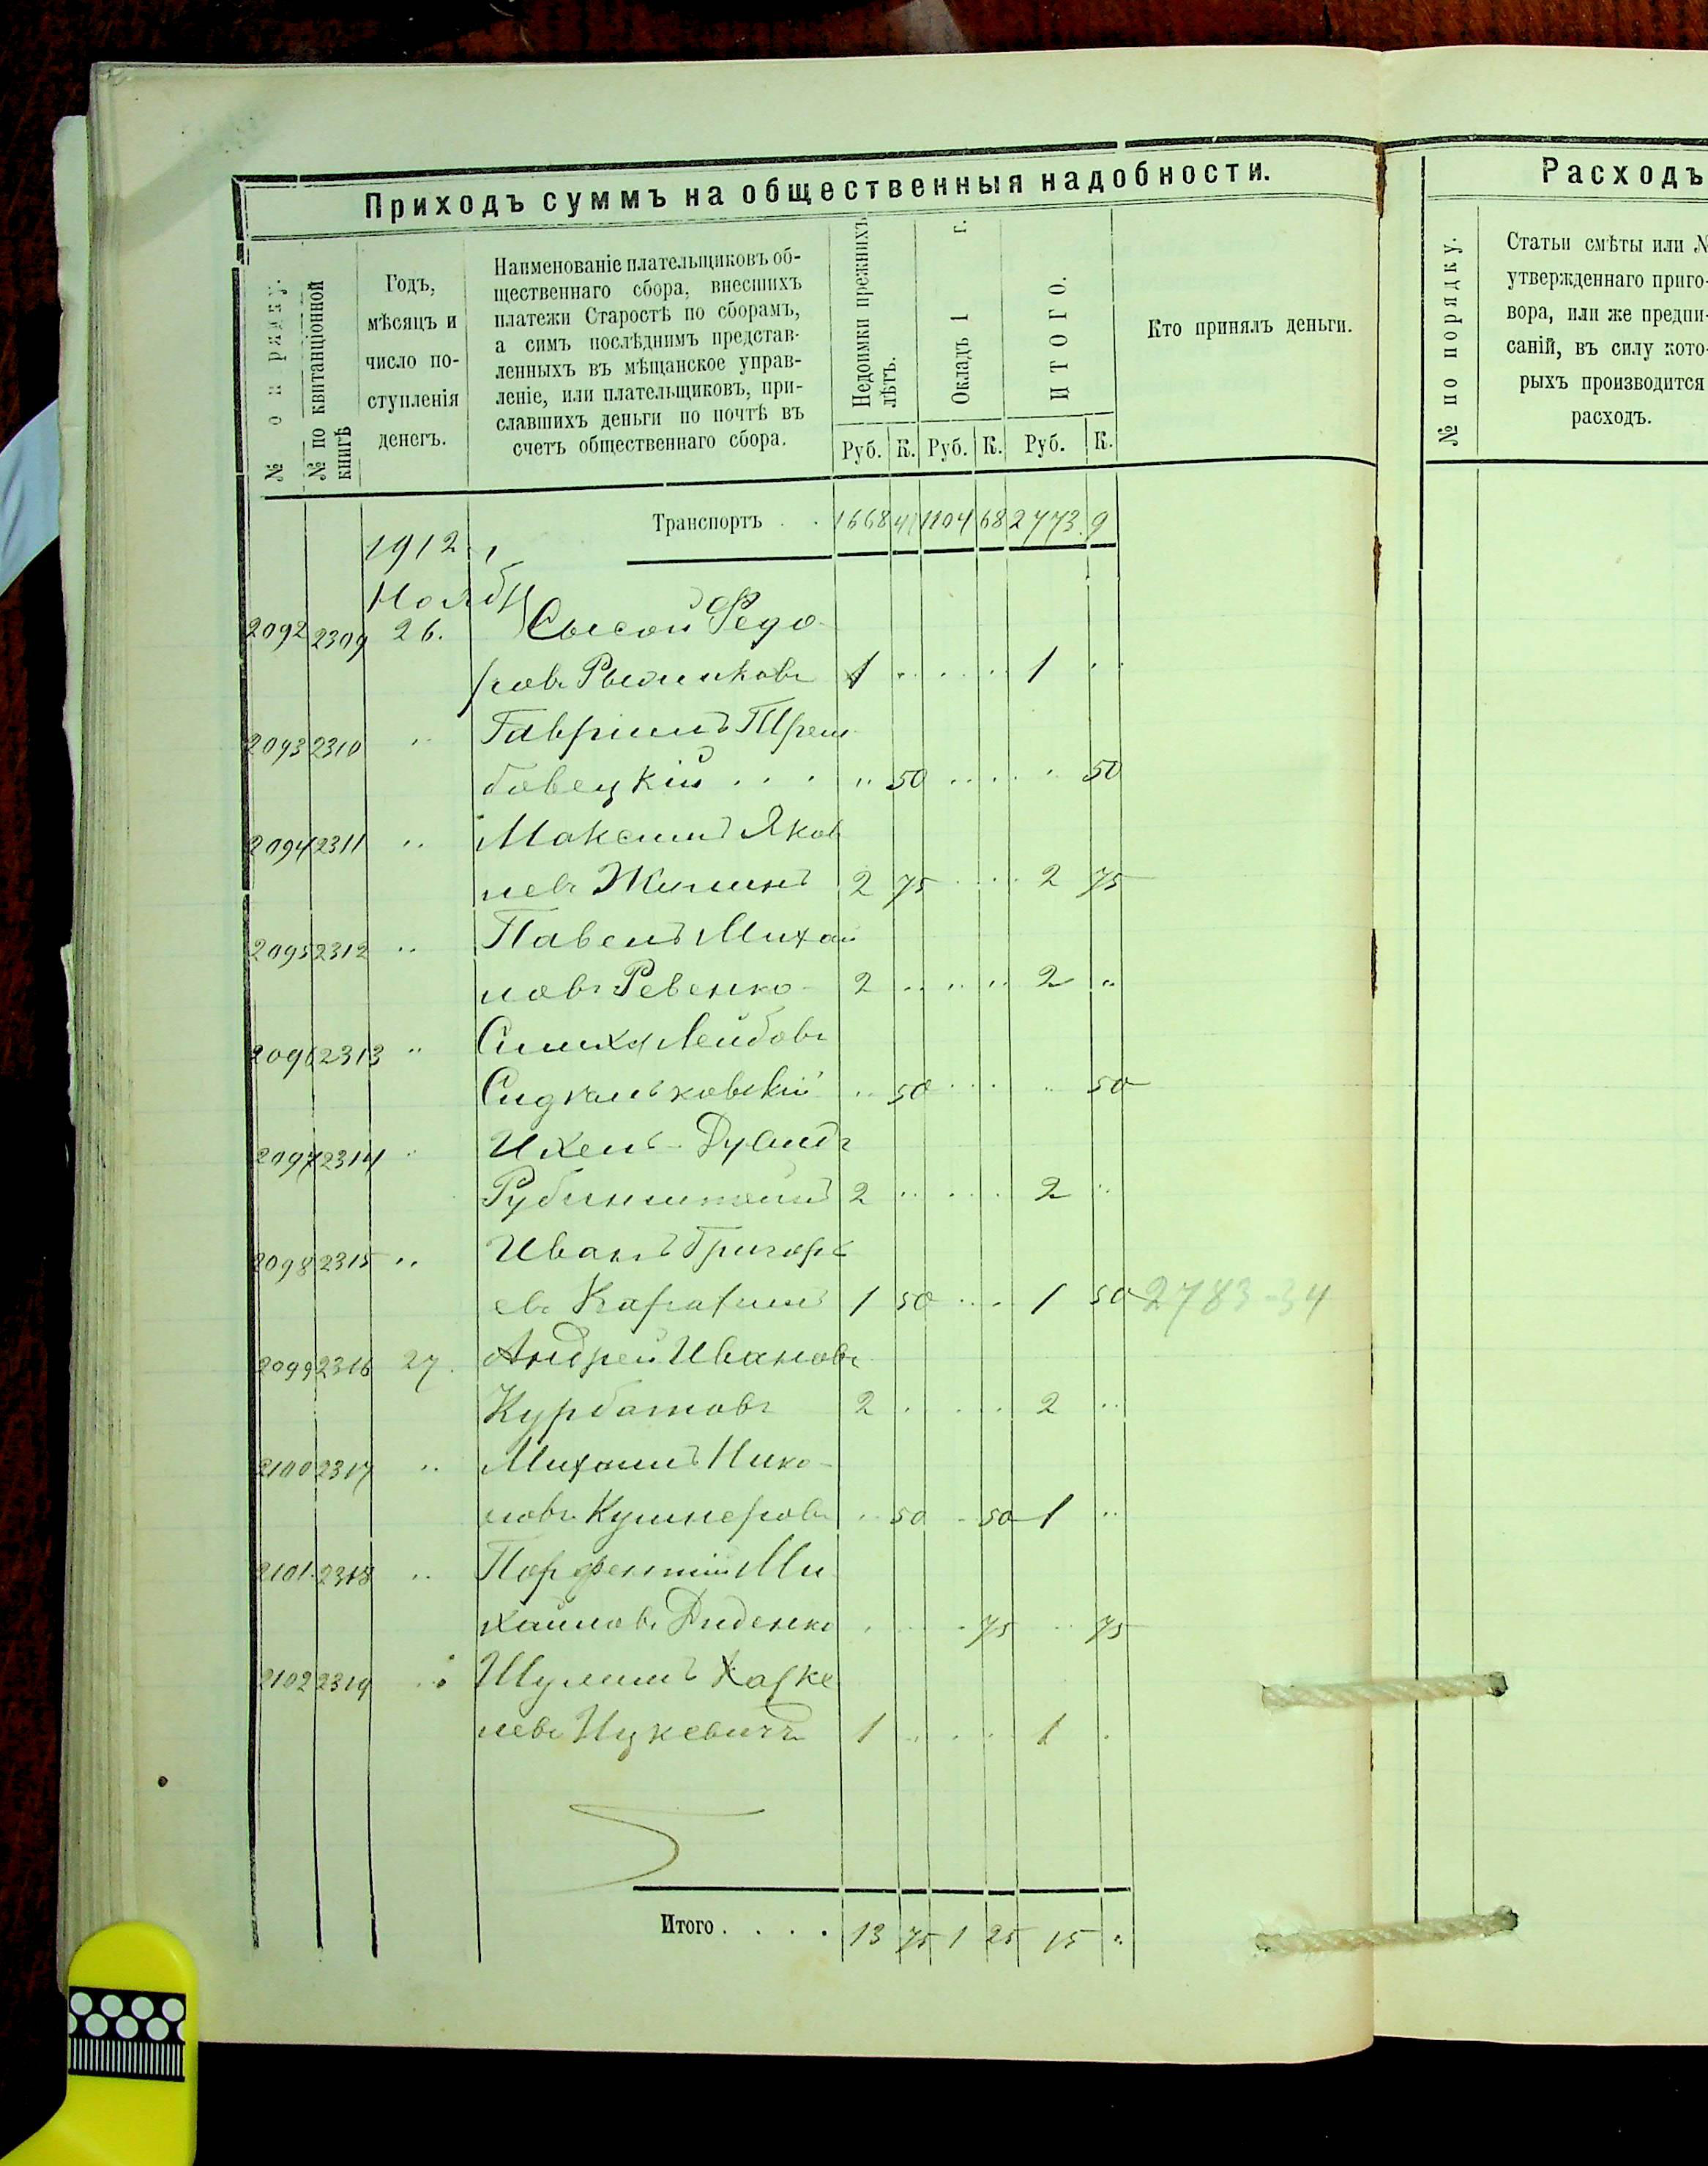 Приходъ суммъ на общественныя надобности.
№ по ряду.
№ по квитанціонной книгѣ
Годъ,
мѣсяцъ и
число по-
ступленія
денегъ.
Наименованіе плательщиковъ об-
щественнаго сбора, внесшихъ
платежи Старостѣ по сборамъ,
а симъ послѣднимъ представ-
ленныхъ въ мѣщанское управ-
леніе, или плательщиковъ, при-
славшихъ деньги по почтѣ въ
счетъ общественнаго сбора.
Недоимки прежнихъ
лѣтъ.
Окладъ 1 г.
ИТОГО.
Руб. К. Руб. К. Руб. К.
Кто принялъ деньги.
Транспортъ . . 1668 41 1104 68 2773 9
1912 г.
Ноябр
2092 2309 26. Сысой Федо-
ровъ 1 1
2093 2310 " Гавріилъ Трем
бовецкій . . . " 50 50
2094 2311 " Максимъ Яков
левъ Жилинъ 2 75 2 75
2095 2312 " Павелъ Михай
ловъ Ревенко 2 2 "
2096 2313 " Симха Лейбовъ
Сидкальковскій " 50 50
2097 2314 "
Рубинштейнъ 2 2 "
2098 2315 " Иванъ Григорь
евъ 1 50 1 50 2783-34
2099 2316 27. Андрей Ивановъ
Курбатовъ 2 2 "
2100 2317 " Михаилъ Нико-
ловъ Кушнеровъ " 50 - 50 1 "
2101 2318 " Порфентій Ми
хайловъ Диденко 75 75
2102 2319 " Шулимъ Хаске
левъ Ицкевичъ 1 1
Итого . . . . 13 75 1 25 15 "
Расходъ
№ по порядку.
Статьи смѣты или №
утвержденнаго приго-
вора, или же предпи-
саній, въ силу кото-
рыхъ производится
расходъ.